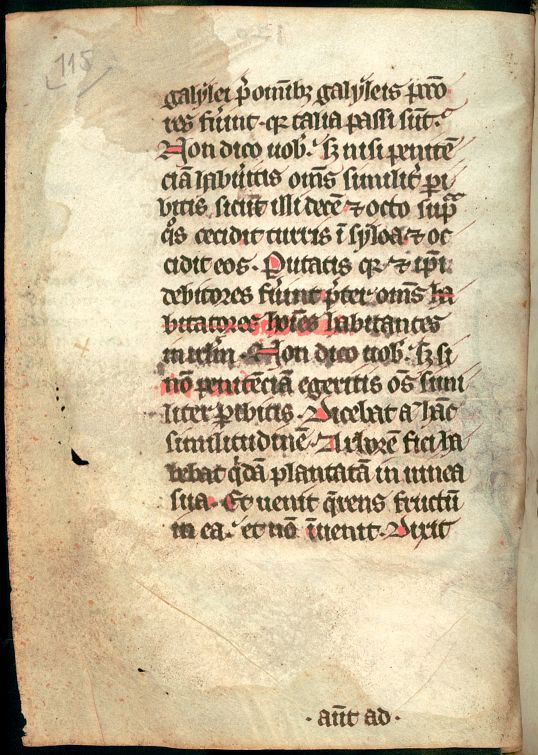 115
galylei p̄ om̄ibꝫ galyleis p̄cc̄o
res fūint· qꝛ talia passi sūt·
Non dico uob̄· sꝫ nisi penitē
ciā habūitis om̄s similit̄ pi
bitis sicut illi decē ⁊ octo sup̄ͣ
q̊s cecidit turris ī syloa· ⁊ oc
cidit eos· Putatis qꝛ ⁊ ip̄i
debitores fūint p̄ter om̄s ha
bitatores hoīes habitantes
in irl̄m· Non dico uob̄· sꝫ si
nō penitēciā egeritis om̄s simi
liter ꝑibitis· Dicebat a̅ hāc
similitudinē· Arborē fici ha
bebat q̄dā plantatā in uinea
sua· Et uenit q̄rens fructū
in ea· et nō īuenit· Dixit
· aūt ad ·